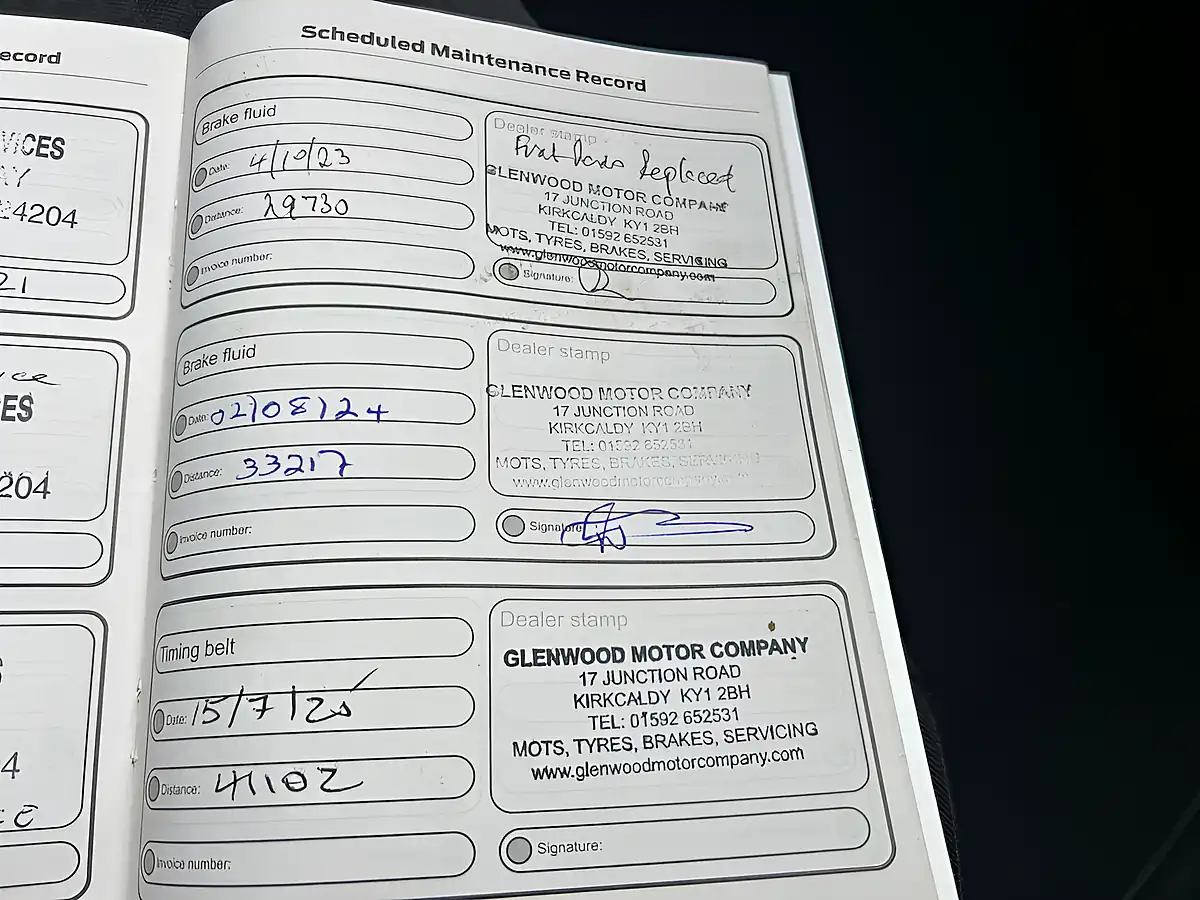 ecord
VICES
24204
21
ES
204
4
Scheduled Maintenance Record
Brake fluid
Date: 4/10/23
Distance: 29730
Invoice number:
Dealer stamp
Replaced
GLENWOOD MOTOR COMPANY
17 JUNCTION ROAD
KIRKCALDY KY1 2BH
TEL: 01592 652531
MOTS, TYRES, BRAKES, SERVICING
www.glenwoodmotorcompany.com
Signature:
Brake fluid
Date: 02/08/24
Distance: 33217
Invoice number:
Dealer stamp
GLENWOOD MOTOR COMPANY
17 JUNCTION ROAD
KIRKCALDY KY1 2BH
TEL: 01592 652531
MOTS, TYRES, BRAKES, SERVICING
www.glenwoodmotorcompany.com
Signature:
Timing belt
Date: 15/7/25
Distance: 41102
Invoice number:
Dealer stamp
GLENWOOD MOTOR COMPANY
17 JUNCTION ROAD
KIRKCALDY KY1 2BH
TEL: 01592 652531
MOTS, TYRES, BRAKES, SERVICING
www.glenwoodmotorcompany.com
Signature: